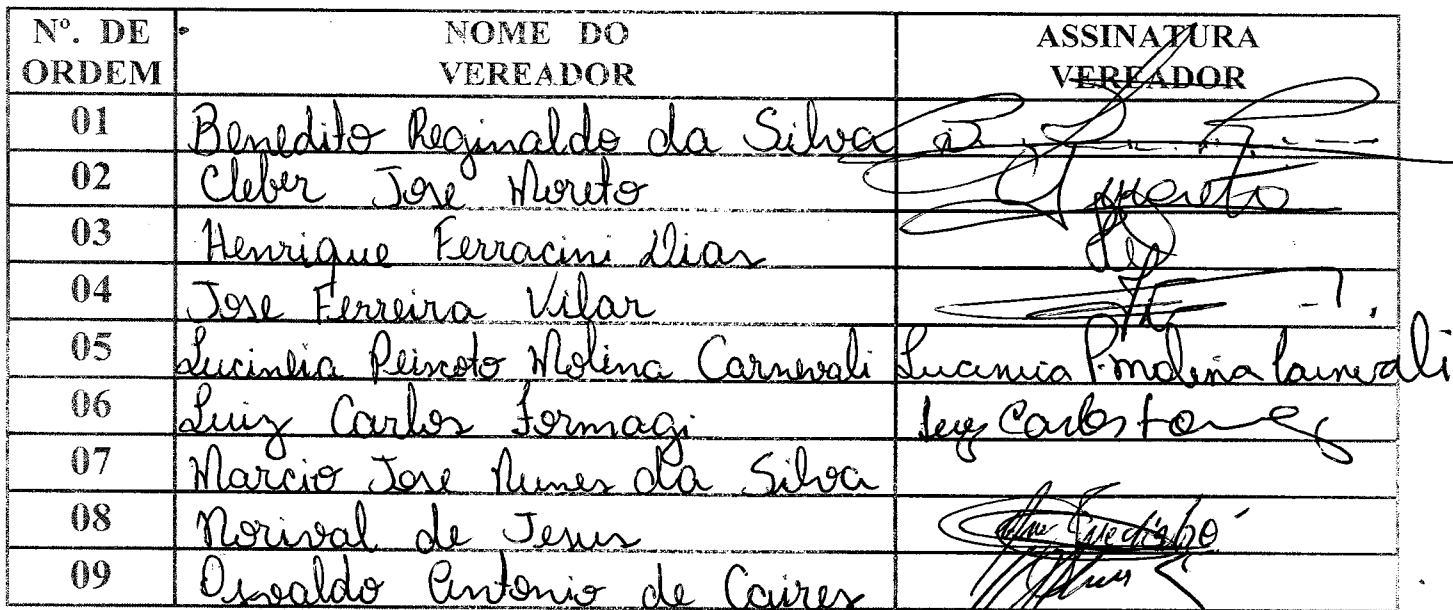 Nº. DE ORDEM NOME DO VEREADOR ASSINATURA VEREADOR
01 Benedito Reginaldo da Silva
02 Cleber Jose Moreto Moreto
03 Henrique Ferracini Dias
04 Jose Ferreira Vilar
05 Lucineia Peixoto Molina Carnevali Lucineia P. Molina Carnevali
06 Luiz Carlos Formagi Luiz Carlos
07 Marcio Jose Nunes da Silva
08 Norival de Jesus
09 Osvaldo Antonio de Caires